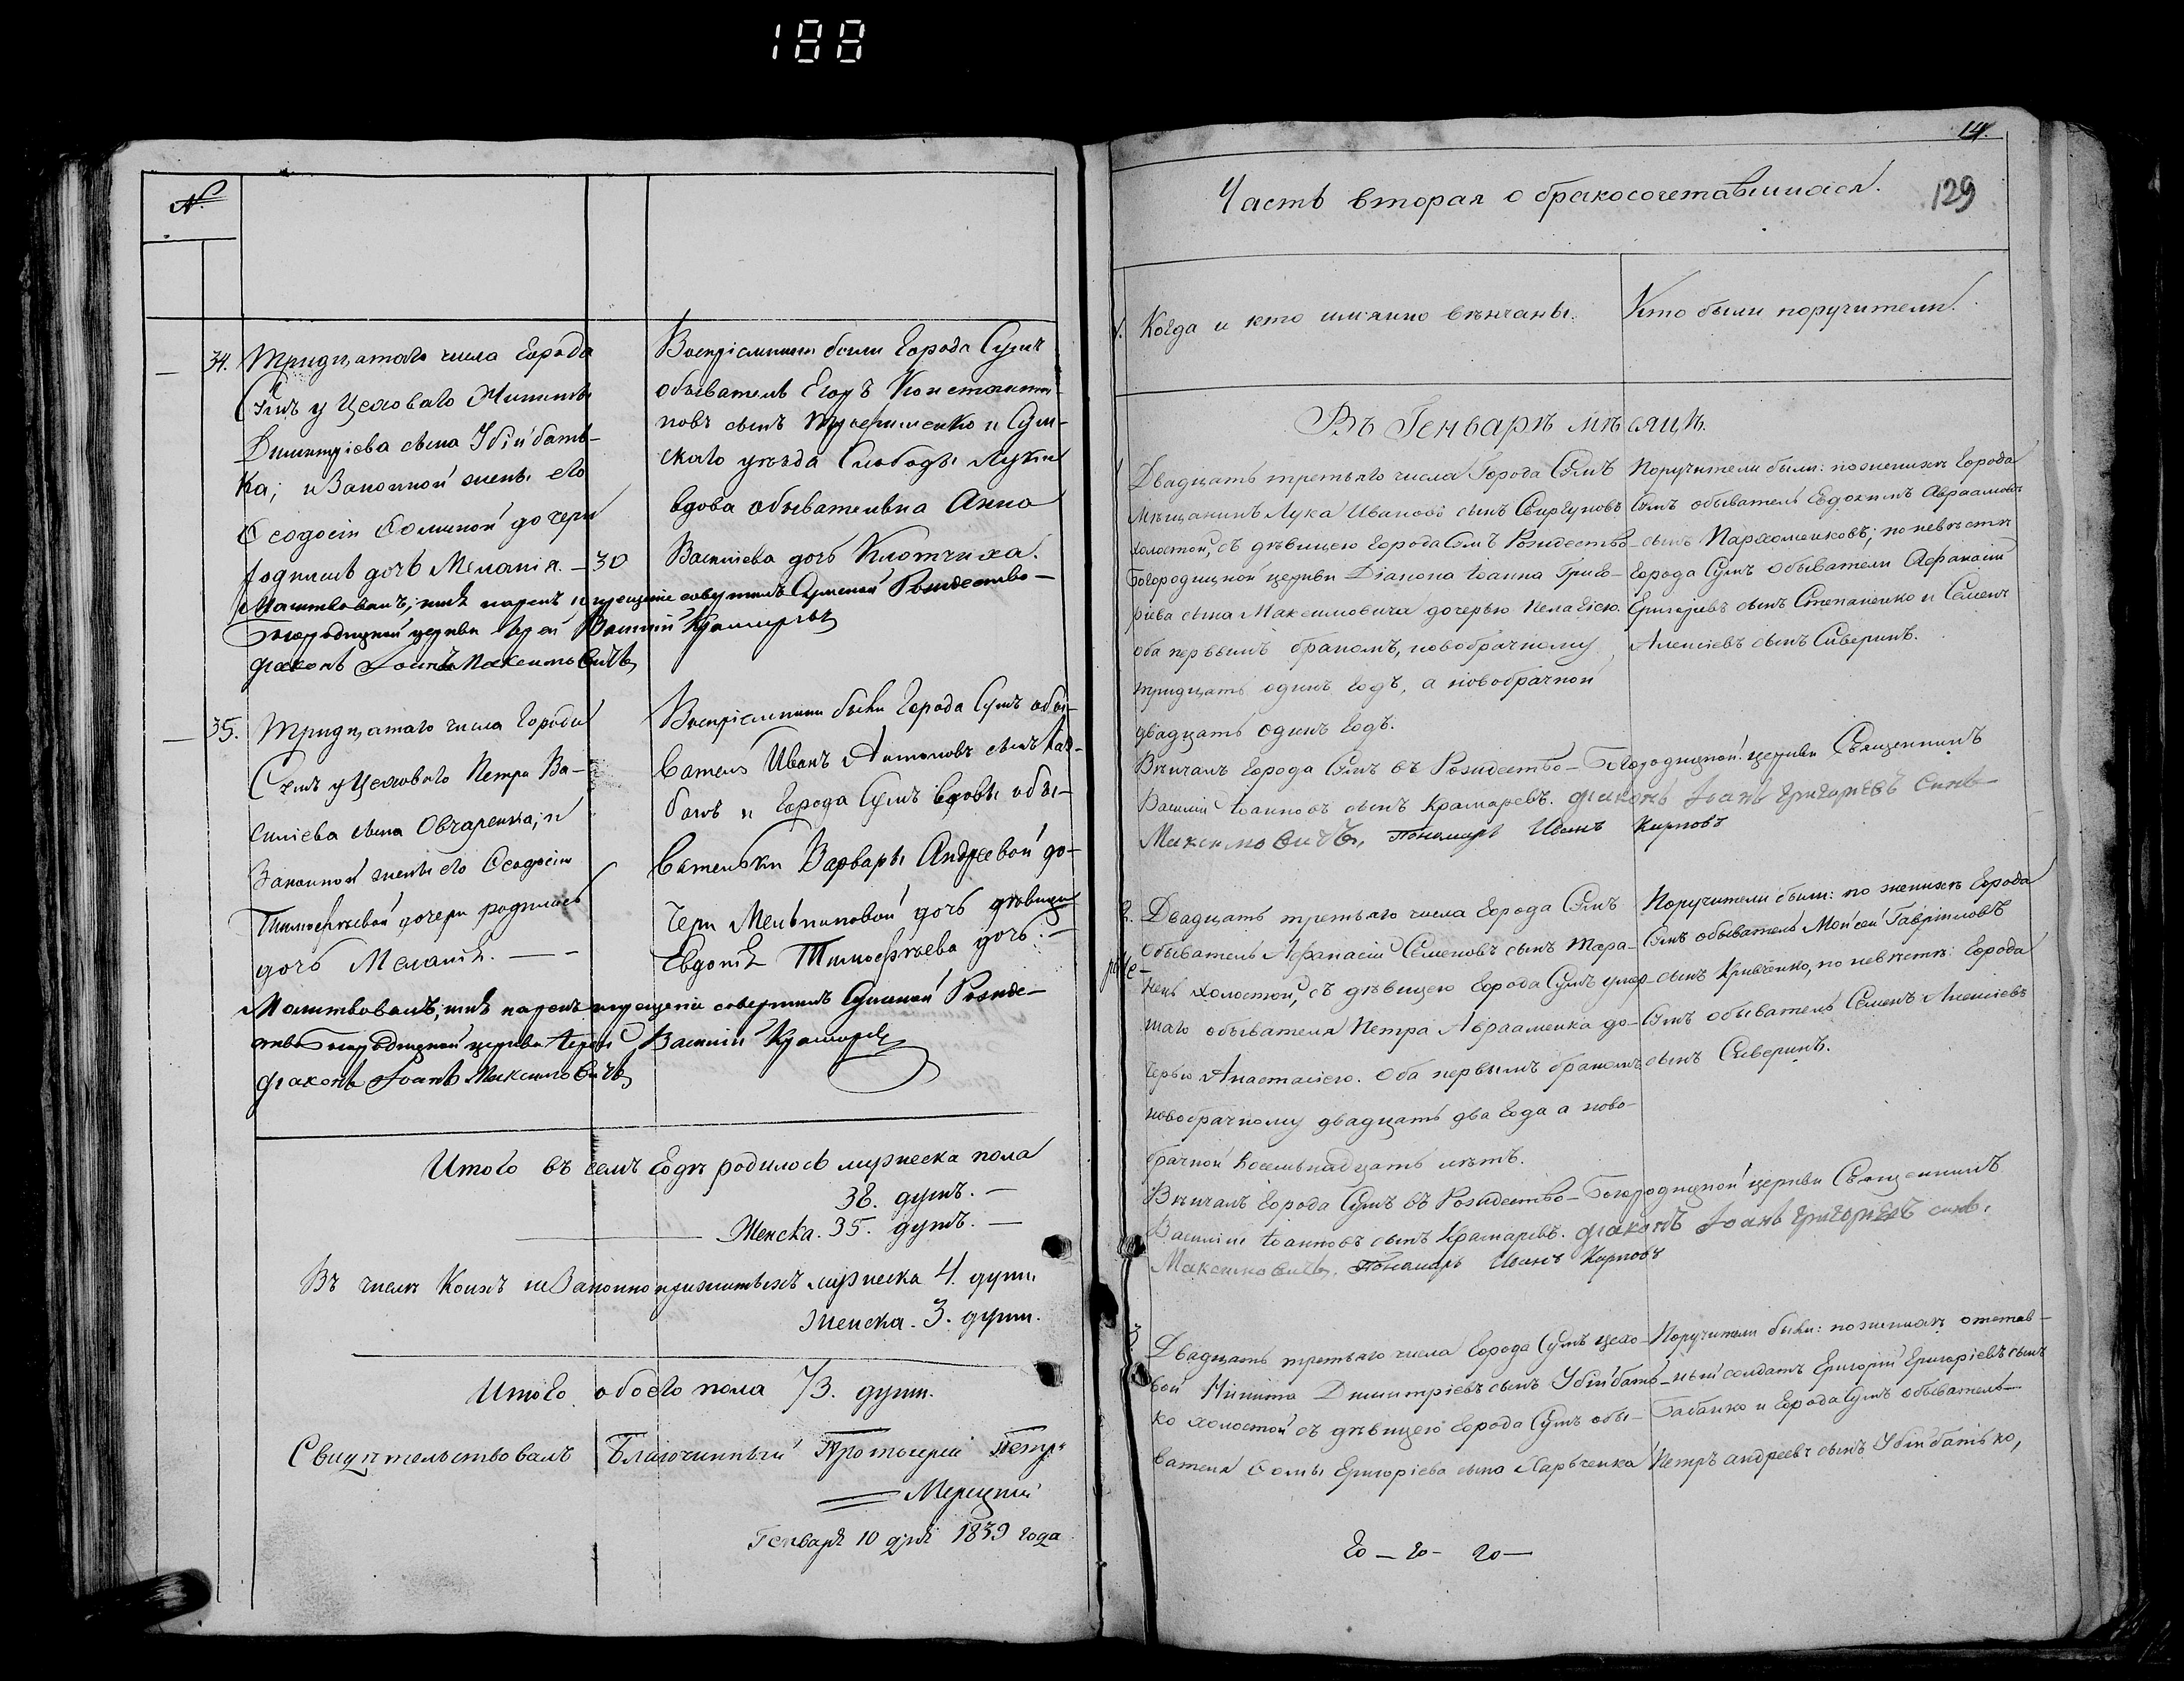 188
№
34. Тридцатаго числа города
Сумъ у Цеховаго Никиты
Димитріева сына Убійбать-
ка; и Законной жены его
Ѳеодосіи Ѳоминой дочери
родилась дочь Меланія. — 30
Воспріемники были города Сумъ
обыватель Егоръ Константи-
новъ сынъ и Сум-
скаго уѣзда Слободы Луки
вдова обывателька Анна
Васильева дочь Клотчиха.
Молитвовалъ, имя нарекъ и крещеніе совершилъ Сумской Рождество-
Богородицкой церкви Іерей Василій Крамаревъ
діаконъ Іоанъ Максимовичъ
35. Тридцатаго числа города
Сумъ у Цеховаго Петра Ва-
силіева сына Овчаренка; и
Законной жены его Ѳеодосіи
Тимоѳѣевой дочери родилась
дочь Меланія. — —
Воспріемники были города Сумъ обы-
ватель Иванъ Антоновъ сынъ
и города Сумъ вдовы обы-
вательки Варвары Андреевой до-
чери Мельниковой дочь дѣвица
Евдокія Тимоѳѣева дочь. —
Молитвовалъ, имя нарекъ и крещеніе совершилъ Сумской Рожде-
ство Богородицкой церкви Іерей Василій Крамаревъ
діаконъ Іоанъ Максимовичъ
Итого въ семъ годѣ родилось мужеска пола
38. душъ. —
Женска. 35. душъ. —
Въ числѣ коихъ незаконноприжитыхъ мужеска 4. души
женска. 3. души.
Итого обоего пола 73. души.
Свидѣтельствовалъ Благочинный Протоіерей Петръ
Мерецкій
Генваря 10 дня 1839 года
14.
Часть вторая о бракосочетавшихся. 129
Когда и кто имянно вѣнчаны.
Кто были поручители.
Въ Генварѣ мѣсяцѣ.
1 Двадцать третьяго числа Города Сумъ
Мѣщанинъ Лука Ивановъ сынъ Свиргуновъ
холостой, съ дѣвицею города Сумъ Рождество-
Богородицкой церкви Діакона Іоанна Григо-
ріева сына Максимовича дочерью Пелагіею.
оба первымъ бракомъ, новобрачному
тридцать одинъ годъ, а новобрачной
двадцать одинъ годъ.
Поручители были: по женихѣ города
Сумъ обыватель Евдокимъ Авраамовъ
сынъ Пархоменковъ; по невѣстѣ
города Сумъ Обыватели Аѳанасій
Григорьевъ сынъ Степаненко и Семенъ
Алексіевъ сынъ Сиверинъ.
Вѣнчалъ города Сумъ въ Рождество-Богородицкой церкви Священникъ
Василій Іоанновъ сынъ Крамаревъ. діаконъ Іоанъ Григорьевъ синъ
Максимовичъ, Пономарь Иванъ Карповъ
2. Двадцать третьяго числа города Сумъ
Обыватель Аѳанасій Семеновъ сынъ Тара-
нень холостой, съ дѣвицею города Сумъ умер-
шаго обывателя Петра Авраменка до-
черью Анастасіею. Оба первымъ бракомъ
новобрачному двадцать два года а ново-
брачной восемьнадцать лѣтъ.
Поручители были: по женихѣ города
Сумъ обыватель Мойсей Гавріиловъ
сынъ Кривченко, по невѣстѣ: города
Сумъ обыватель Семенъ Алексіевъ
сынъ Сиверинъ.
Вѣнчалъ города Сумъ въ Рождество-Богородицкой церкви Священникъ
Василій Іоанновъ сынъ Крамаревъ. діаконъ Іоанъ Григорьевъ синъ.
Максимовичъ. Пономарь Иванъ Карповъ
3 Двадцать третьяго числа города Сумъ цехо-
вой Никита Димитріевъ сынъ Убійбать-
ко холостой съ дѣвицею города Сумъ обы-
вателя Ѳомы Григоріева сына Харьченка
Поручители были: по женихѣ отстав-
ный солдатъ Григорій Григоріевъ сынъ
Бабанко и города Сумъ обыватель
Петръ Андреевъ сынъ Убійбатько,
го — го — го —